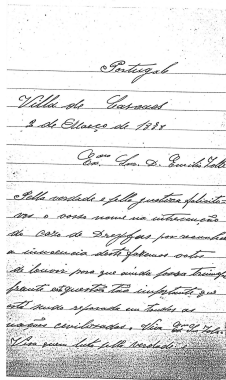 Portugal
Villa de Cascaes
2 de Março de 1898
Exmo Snr. D. Emilio Zola
Pella verdade e pella justiça felicita-
mos o vosso nome na
do caso de Dreyffus por
a innocencia deste fazemos votos
de louvor para que ainda possa
frente a questão tão importante que
está sendo reparada em todas as
nações civilisadas. Viva Emo Snr Zola.
Viva quem luta pella verdade.